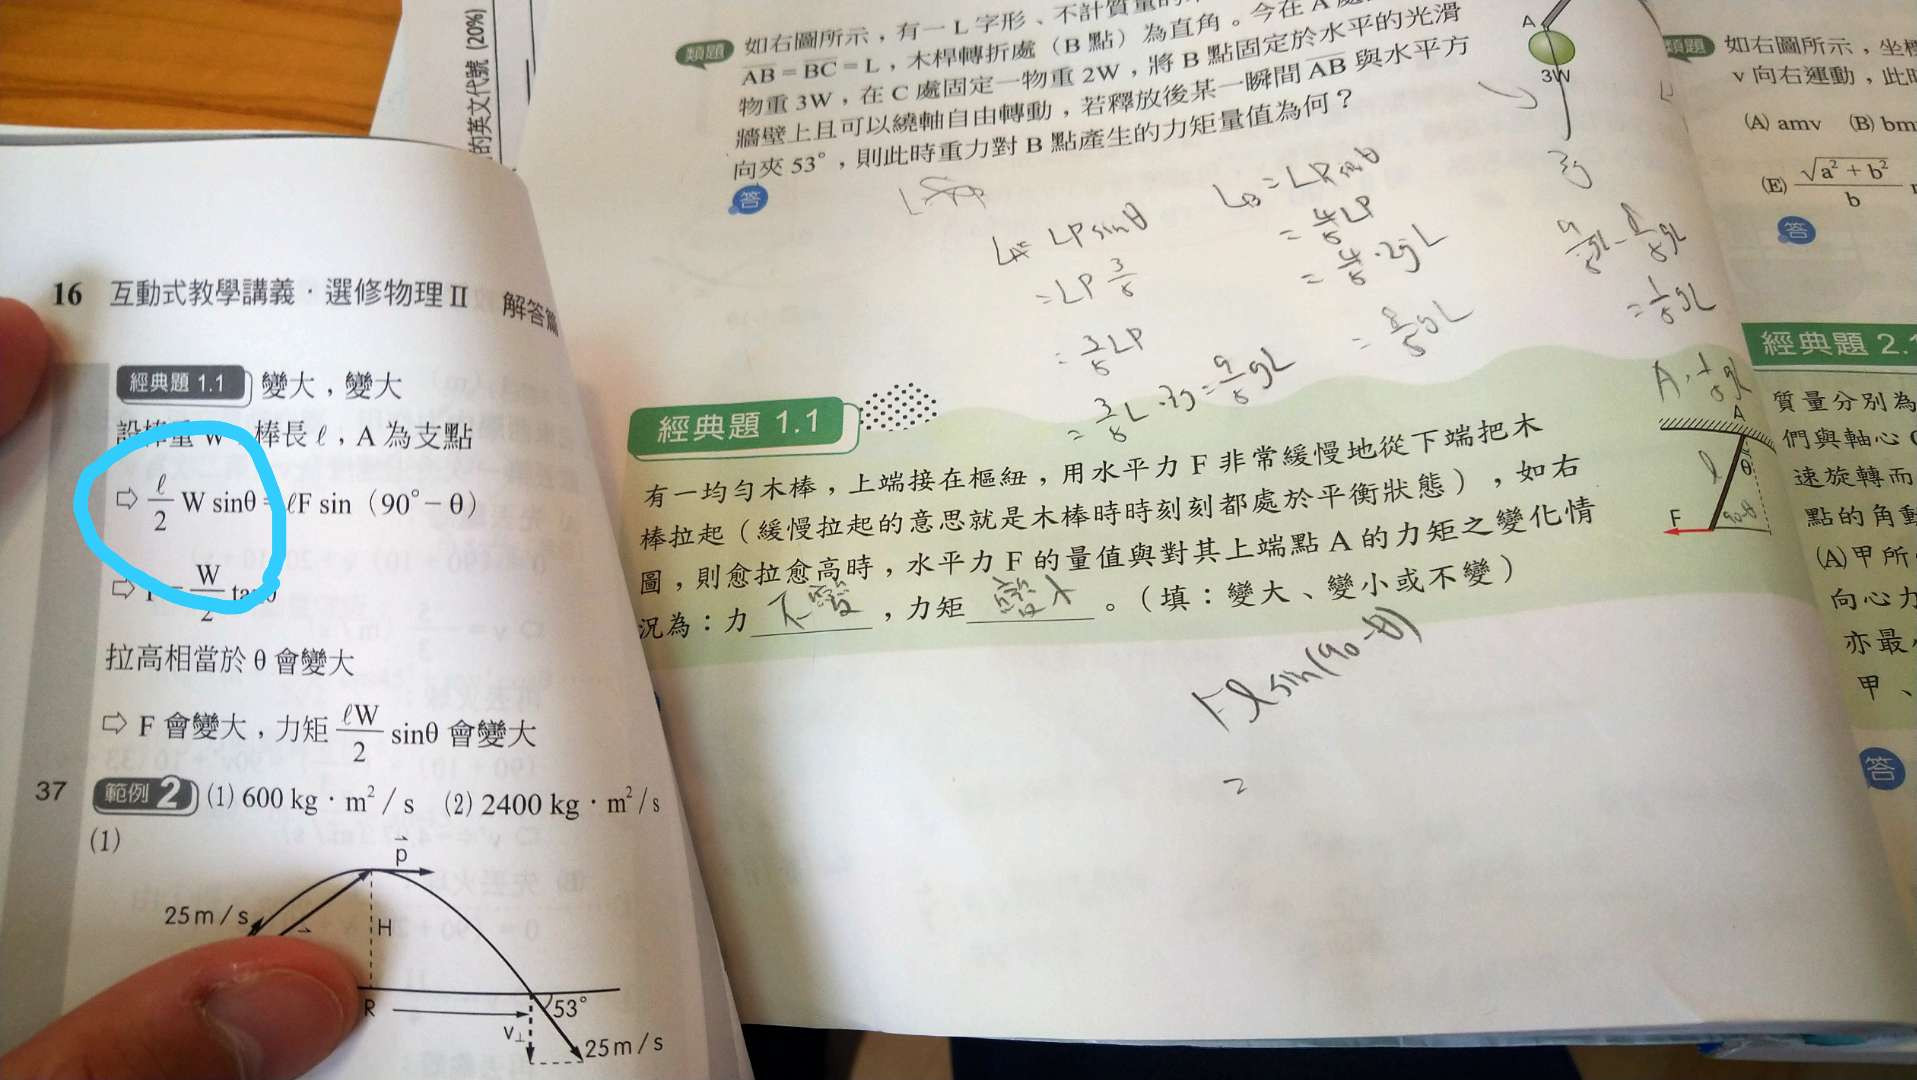 的英文代號 (20%)
16 互動式教學講義・選修物理Ⅱ 解答篇
經典題 1.1 變大，變大
設棒重 W 棒長 ℓ，A 為支點
⇨ ℓ/2 W sinθ = ℓF sin（90°－θ）
⇨ F = W/2 tanθ
拉高相當於 θ 會變大
⇨ F 會變大，力矩 ℓW/2 sinθ 會變大
37 範例 2 (1) 600 kg・m²/s (2) 2400 kg・m²/s
(1)
p
25 m/s
H
R
53°
v⊥
25 m/s
類題 如右圖所示，有一 L 字形、不計質量的
AB＝BC＝L，木桿轉折處（B 點）為直角。今在 A
物重 3W，在 C 處固定一物重 2W，將 B 點固定於水平的光滑
牆壁上且可以繞軸自由轉動，若釋放後某一瞬間 AB 與水平方
向夾 53°，則此時重力對 B 點產生的力矩量值為何？
答
A
3W
3g
L_A = LP sinθ
= LP 3/5
= 3/5 LP
= 3/5 L · 3g = 9/5 gL
L_B = LP sinθ
= 4/5 LP
= 4/5 · 2g L
= 8/5 gL
9/5 gL - 8/5 gL
= 1/5 gL
A, 1/5 gL
經典題 1.1
有一均勻木棒，上端接在樞紐，用水平力 F 非常緩慢地從下端把木
棒拉起（緩慢拉起的意思就是木棒時時刻刻都處於平衡狀態），如右
圖，則愈拉愈高時，水平力 F 的量值與對其上端點 A 的力矩之變化情
況為：力 不變，力矩 變大。（填：變大、變小或不變）
A
θ
ℓ
90-θ
F
Fℓ sin(90-θ)
=
類題 如右圖所示，坐標
v 向右運動，此時
(A) amv (B) bm
(E) √(a²+b²)/b
答
經典題 2.1
質量分別為
們與軸心
速旋轉而
點的角動
(A)甲所
向心力
亦最小
甲、
答